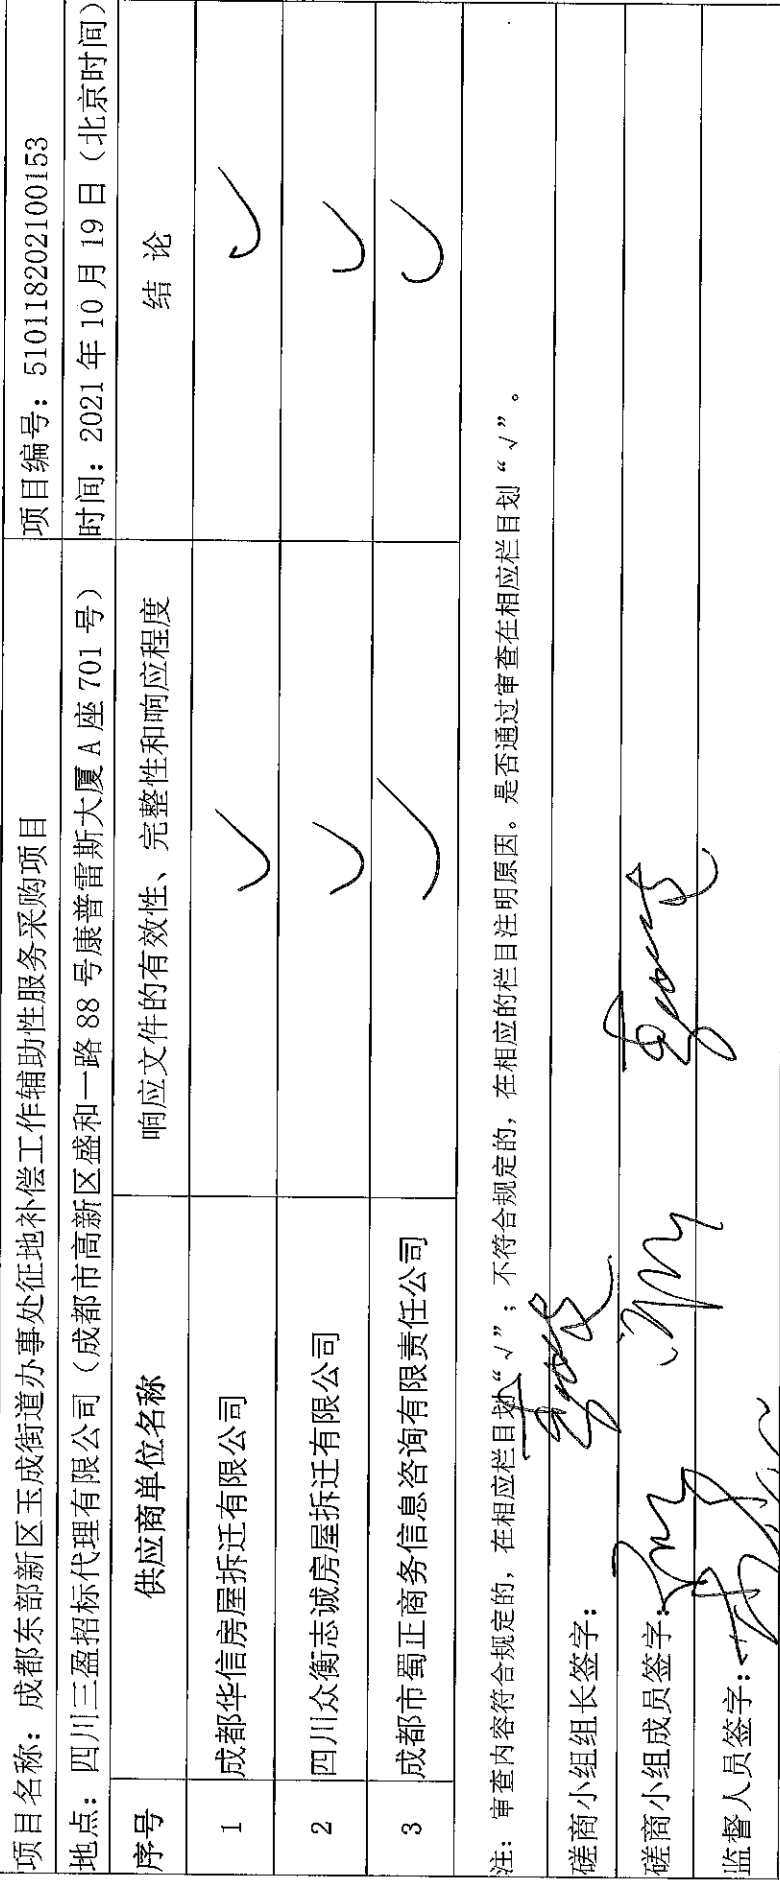 项目名称：成都东部新区玉成街道办事处征地补偿工作辅助性服务采购项目 项目编号：510118202100153
地点：四川三盈招标代理有限公司（成都市高新区盛和一路 88 号康普雷斯大厦 A 座 701 号） 时间：2021 年 10 月 19 日（北京时间）
序号 供应商单位名称 响应文件的有效性、完整性和响应程度 结 论
1 成都华信房屋拆迁有限公司 √ √
2 四川众衡志诚房屋拆迁有限公司 √ √
3 成都市蜀正商务信息咨询有限责任公司 √ √
注：审查内容符合规定的，在相应栏目划“√”；不符合规定的，在相应的栏目注明原因。是否通过审查在相应栏目划“√”。
磋商小组组长签字：
磋商小组成员签字：
监督人员签字：